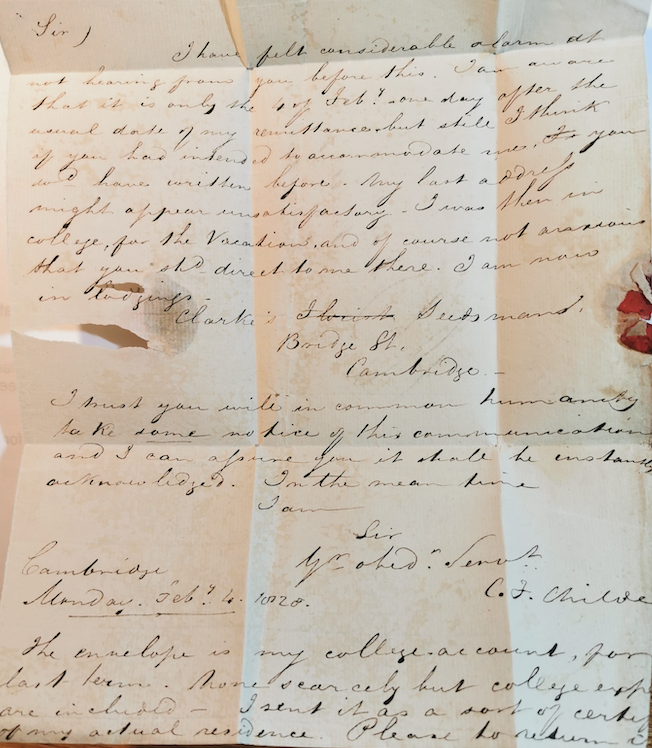 Sir)
I have felt considerable alarm at
not hearing from you before this. I am aware
that it is only the 4 of Feby. one day after the
usual date of my remittance, but still I think
if you had intended to accommodate me, you
wd. have written before. My last address
might appear unsatisfactory - I was then in
college, for the Vacation, and of course not anxious
that you shd. direct to me there. I am now
in lodgings -
Clarke's Florist Seedsmand.
Bridge St.
Cambridge -
I trust you will in common humanity
take some notice of this communication
and I can assure you it shall be instantly
acknowledged. In the mean time
I am
Sir
Yr. obedn. Servt.
C. F. Childe
Cambridge
Monday. Feby. 4. 1828.
The envelope is my college account, for
last term. None scarcely but college exp
are included - I sent it as a sort of certif
of my actual residence. Please to return i